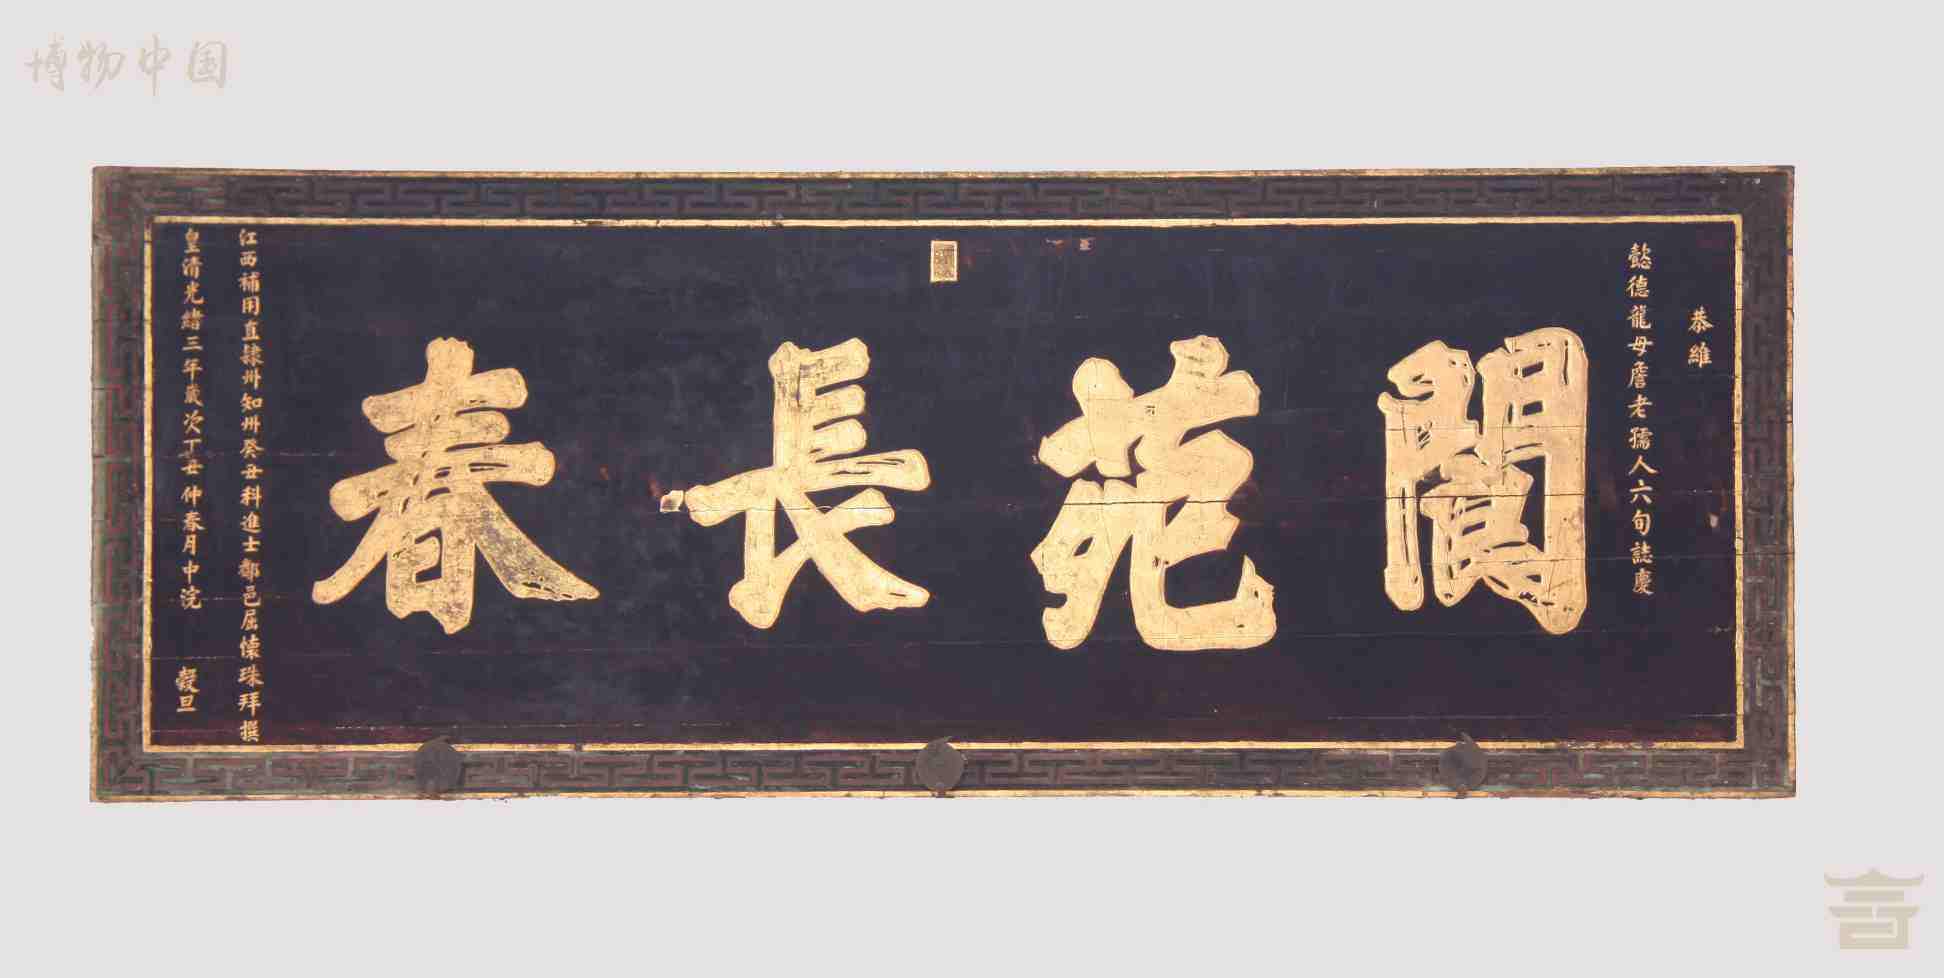 博物中国
恭維
懿德龍母詹老孺人六旬誌慶
閬苑長春
江西補用直隸州知州癸丑科進士鄰邑屈懷珠拜撰
皇清光緒三年歲次丁丑仲春月中浣 穀旦